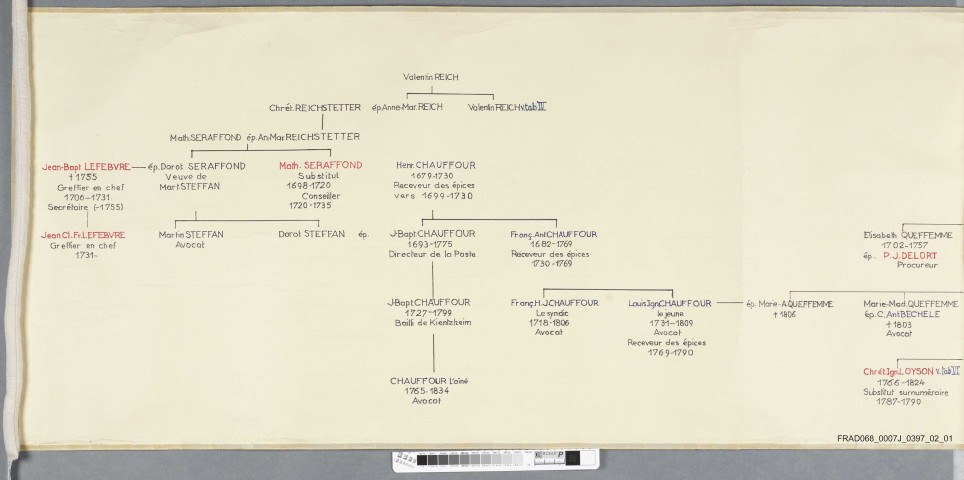 Valentin REICH
Chrét. REICHSTETTER ép. Anne-Mar. REICH Valentin REICH v. tab IV
Math. SERAFFOND ép. An-Mar. REICHSTETTER
Jean-Bapt LEFEBVRE
† 1755
Greffier en chef
1706-1731
Secrétaire (-1755)
ép. Dorot SERAFFOND
Veuve de
Mart. STEFFAN
Math. SERAFFOND
Substitut
1698-1720
Conseiller
1720-1735
Henr. CHAUFFOUR
1679-1730
Receveur des épices
vers 1699-1730
Jean Cl. Fr. LEFEBVRE
Greffier en chef
1731-
Martin STEFFAN
Avocat
Dorot STEFFAN ép.
J-Bapt. CHAUFFOUR
1693-1775
Directeur de la Poste
Franç. Ant. CHAUFFOUR
1682-1769
Receveur des épices
1730-1769
Elisabeth QUEFFEMME
1702-1757
ép. P.J. DELORT
Procureur
J-Bapt. CHAUFFOUR
1727-1799
Bailli de Kientzheim
Franç. H. J. CHAUFFOUR
Le syndic
1718-1806
Avocat
Louis Ign. CHAUFFOUR
le jeune
1731-1809
Avocat
Receveur des épices
1769-1790
ép. Marie-A. QUEFFEMME
† 1806
Marie-Mad. QUEFFEMME
ép. C. Ant BECHELE
† 1803
Avocat
CHAUFFOUR l'aîné
1765-1834
Avocat
Chrét Ign. LOYSON v. tab VI
1766-1824
Substitut surnuméraire
1787-1790
FRAD068_0007J_0397_02_01